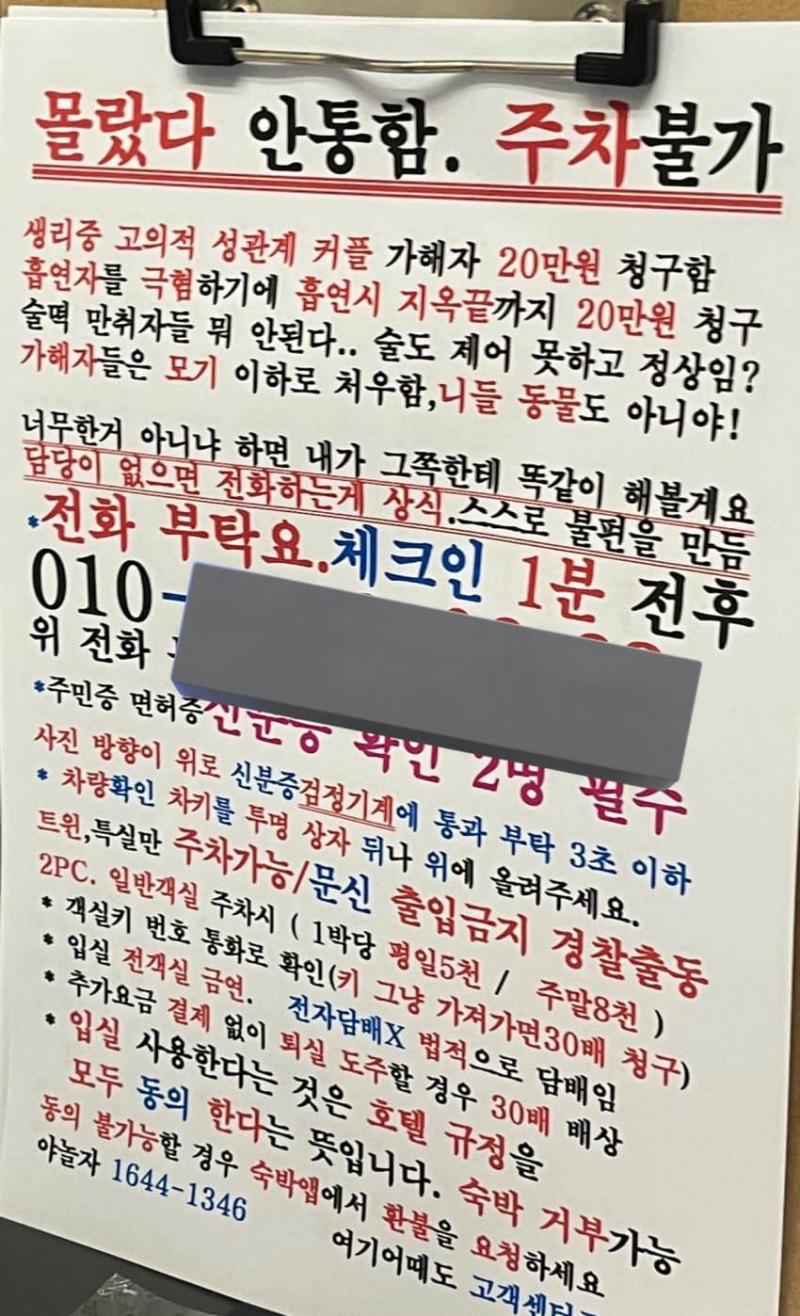 몰랐다 안통함. 주차불가
생리중 고의적 성관계 커플 가해자 20만원 청구함
흡연자를 극혐하기에 흡연시 지옥끝까지 20만원 청구
술떡 만취자들 뭐 안된다.. 술도 제어 못하고 정상임?
가해자들은 모기 이하로 처우함,니들 동물도 아니야!
너무한거 아니냐 하면 내가 그쪽한테 똑같이 해볼게요
담당이 없으면 전화하는게 상식.스스로 불편을 만듬
*전화 부탁요.체크인 1분 전후
010-
위 전화
*주민증 면허증신분증 확인 2명 필수
사진 방향이 위로 신분증검정기계에 통과 부탁 3초 이하
* 차량확인 차키를 투명 상자 뒤나 위에 올려주세요.
트윈,특실만 주차가능/문신 출입금지 경찰출동
2PC. 일반객실 주차시 ( 1박당 평일5천 / 주말8천 )
* 객실키 번호 통화로 확인(키 그냥 가져가면30배 청구)
* 입실 전객실 금연. 전자담배X 법적으로 담배임
* 추가요금 결제 없이 퇴실 도주할 경우 30배 배상
* 입실 사용한다는 것은 호텔 규정을
모두 동의 한다는 뜻입니다. 숙박 거부가능
동의 불가능할 경우 숙박앱에서 환불을 요청하세요
야놀자 1644-1346 여기어때도 고객센터